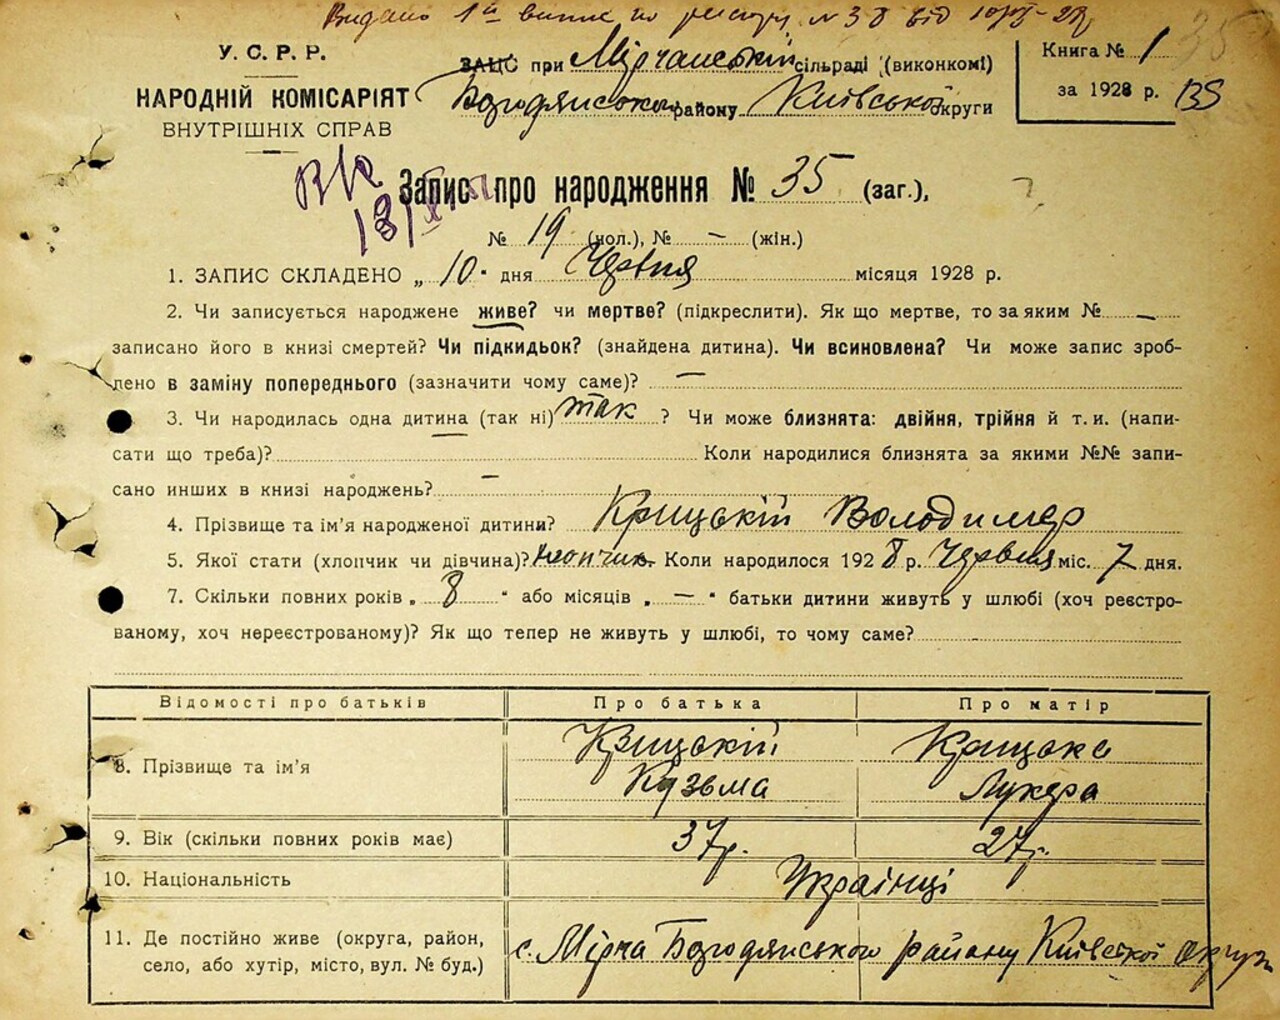 Видано 1й випис по реєстру № 38 від
У. С. Р. Р.
НАРОДНІЙ КОМІСАРІЯТ
ВНУТРІШНІХ СПРАВ
ЗАЦС при Мірчанській сільраді (виконкомі)
району Київської округи
Книга № 1
за 1928 р. 135
35
Запис про народження № 35 (заг.),
№ 19 (чол.), № — (жін.)
1. ЗАПИС СКЛАДЕНО „ 10 " дня Червня місяця 1928 р.
2. Чи записується народжене живе? чи мертве? (підкреслити). Як що мертве, то за яким № —
записано його в книзі смертей? Чи підкидьок? (знайдена дитина). Чи всиновлена? Чи може запис зроб-
лено в заміну попереднього (зазначити чому саме)? —
3. Чи народилась одна дитина (так ні) так ? Чи може близнята: двійня, трійня й т. и. (напи-
сати що треба)? Коли народилися близнята за якими №№ запи-
сано инших в книзі народжень? —
4. Прізвище та ім'я народженої дитини? Крицький Володимер
5. Якої стати (хлопчик чи дівчина)? хлопчик Коли народилося 1928 р. Червня міс. 7 дня.
7. Скільки повних років „ 8 " або місяців „ — " батьки дитини живуть у шлюбі (хоч реєстро-
ваному, хоч нереєстрованому)? Як що тепер не живуть у шлюбі, то чому саме?
Відомості про батьків Про батька Про матір
8. Прізвище та ім'я Крицькій Кузьма Крицька Лукера
9. Вік (скільки повних років має) 37 р. 27 р.
10. Національність Українці
11. Де постійно живе (округа, район,
село, або хутір, місто, вул. № буд.) с. Мірча району Київської округи